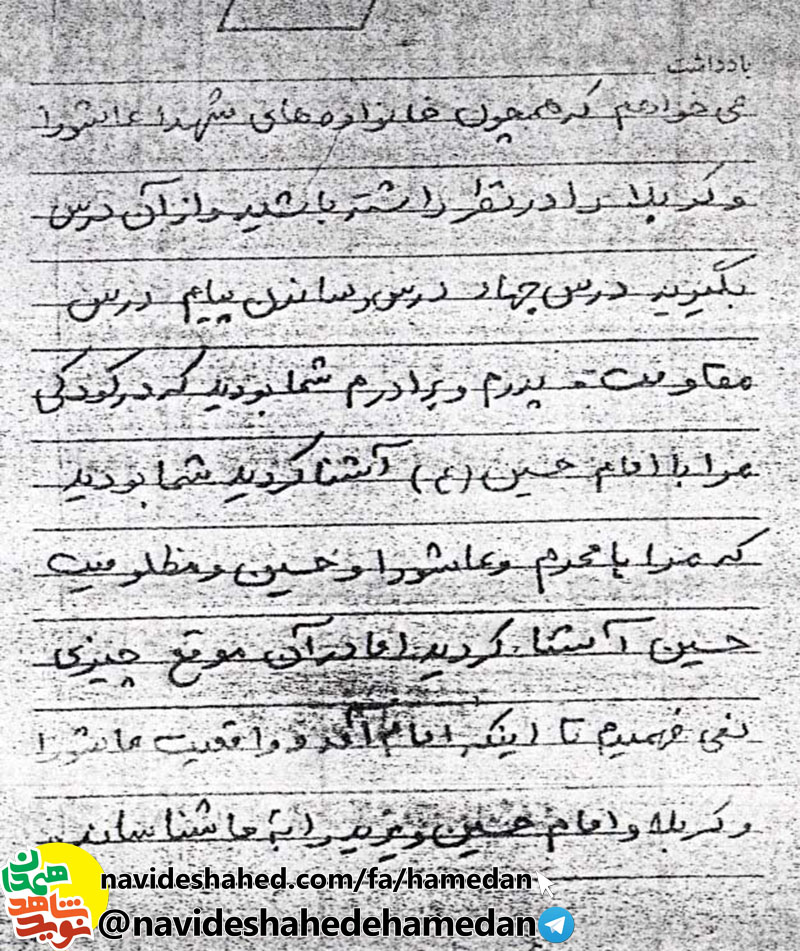 یادداشت
می خواهم که همچون خانواده های شهدا عاشورا
و کربلا را در نظر داشته باشید و از آن درس
بگیرید درس جهاد درس رساندن پیام درس
مقاومت پدرم و برادرم شما بودید که در کودکی
مرا با امام حسین (ع) آشنا کردید شما بودید
که مرا با محرم و عاشورا و حسین و مظلومیت
حسین آشنا کردید اما در آن موقع چیزی
نمی فهمیدم تا اینکه امام آمد و واقعیت عاشورا
و کربلا و امام حسین و یزید را به ما شناساند
نوید شاهد همدان
navideshahed.com/fa/hamedan
@navideshahedehamedan